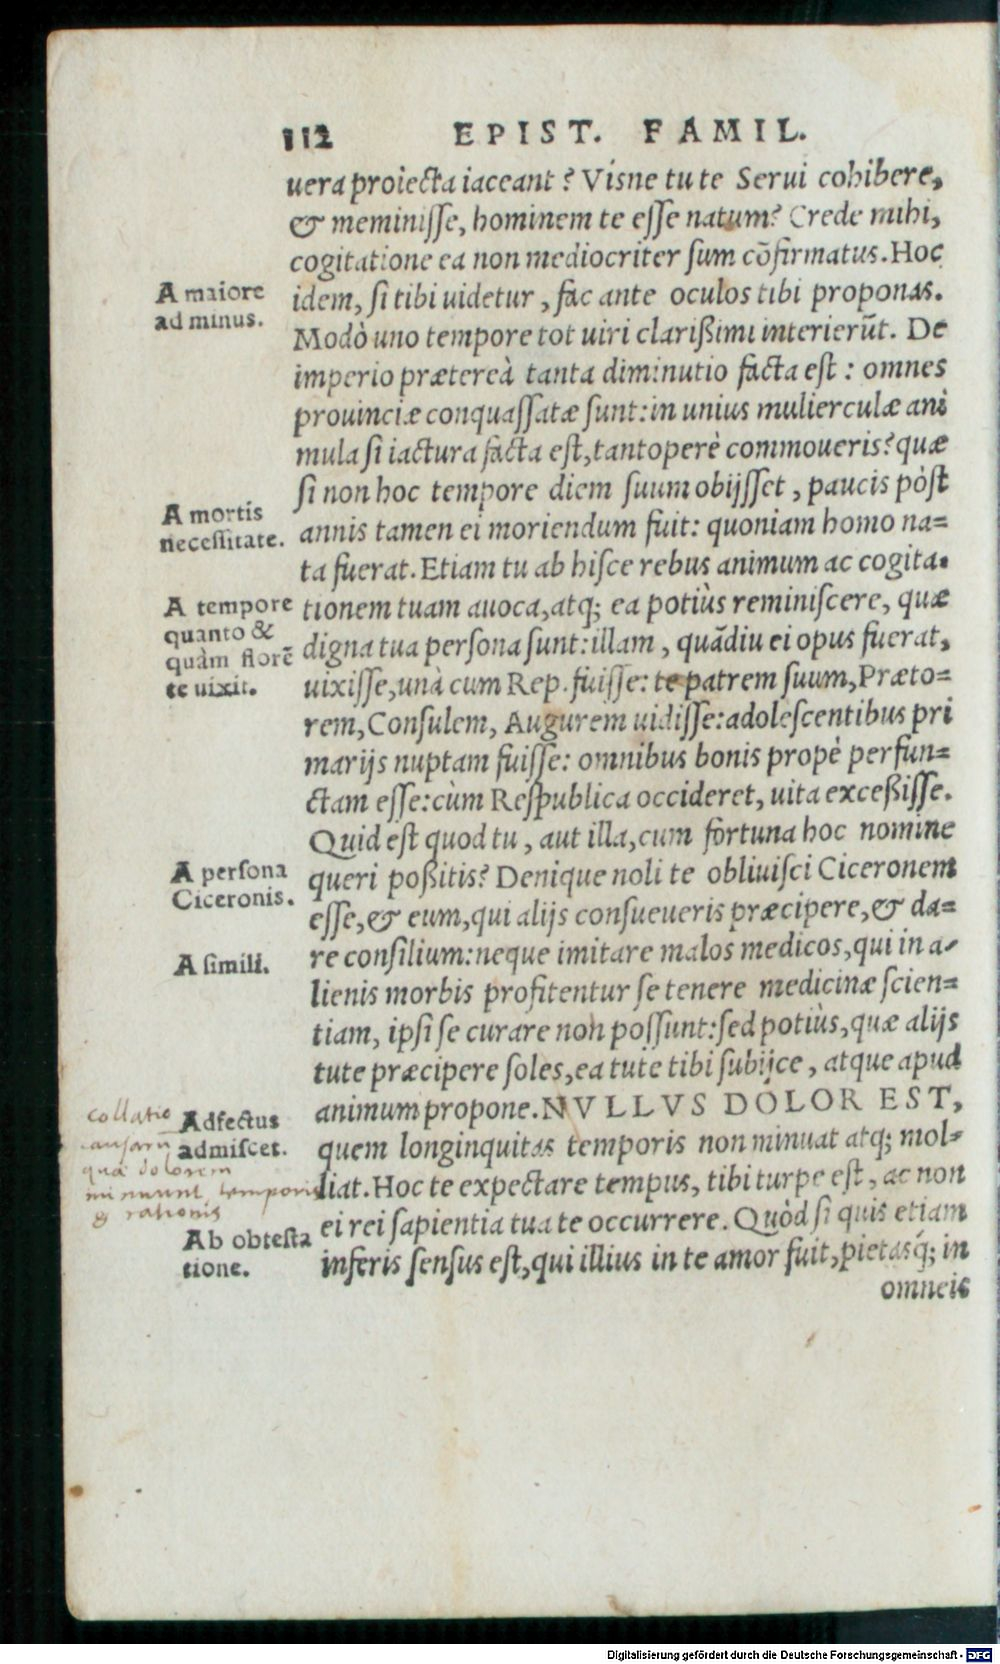 112 EPIST. FAMIL.
uera proiecta iaceant? Visne tu te Serui cohibere,
& meminisse, hominem te esse natum? Crede mihi,
cogitatione ea non mediocriter sum cõfirmatus. Hoc
A maiore
ad minus.
idem, si tibi uidetur, fac ante oculos tibi proponas.
Modò uno tempore tot uiri clarißimi interierũt. De
imperio prætereà tanta diminutio facta est: omnes
prouinciæ conquassatæ sunt: in unius mulierculæ ani
mula si iactura facta est, tantoperè commoueris? quæ
si non hoc tempore diem suum obijsset, paucis pòst
A mortis
necessitate.
annis tamen ei moriendum fuit: quoniam homo na=
ta fuerat. Etiam tu ab hisce rebus animum ac cogita=
A tempore
quanto &
quàm florẽ
te uixit.
tionem tuam auoca, atq; ea potiùs reminiscere, quæ
digna tua persona sunt: illam, quãdiu ei opus fuerat,
uixisse, unà cum Rep. fuisse: te patrem suum, Præto=
rem, Consulem, Augurem uidisse: adolescentibus pri
marijs nuptam fuisse: omnibus bonis propè perfun=
ctam esse: cùm Respublica occideret, uita exceßisse.
Quid est quod tu, aut illa, cum fortuna hoc nomine
A persona
Ciceronis.
queri poßitis? Denique noli te obliuisci Ciceronem
esse, & eum, qui alijs consueueris præcipere, & da=
A simili.
re consilium: neque imitare malos medicos, qui in a=
lienis morbis profitentur se tenere medicinæ scien=
tiam, ipsi se curare non possunt: sed potiùs, quæ alijs
tute præcipere soles, ea tute tibi subijce, atque apud
Adfectus
admiscet.
collatio
causarũ
quæ dolorem
minuunt, temporis
& rationis
animum propone. NVLLVS DOLOR EST,
quem longinquitas temporis non minuat atq; mol=
liat. Hoc te expectare tempus, tibi turpe est, ac non
Ab obtesta
tione.
ei rei sapientia tua te occurrere. Quòd si quis etiam
inferis sensus est, qui illius in te amor fuit, pietasq́; in
omneis
Digitalisierung gefördert durch die Deutsche Forschungsgemeinschaft - DFG